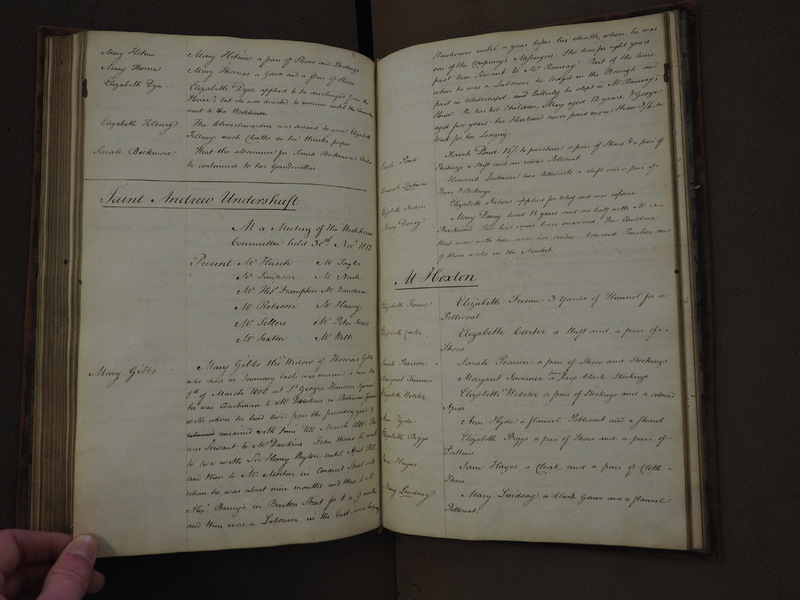 Mary Holmes
Mary Holmes a pair of Shoes and Stockings
Mary Thomas
Mary Thomas a Gown and a pair of Shoes
Elizabeth Dye
Elizabeth Dye applied to be discharged from the
House, but she was directed to remain until the Committee
went to the Workhouse
Elizabeth
The Churchwarden was desired to give Elizabeth
such Clothes as he thinks proper
Sarah Beckmore
That the allowance for Sarah Beckmore's Child
be continued to her Grandmother
Saint Andrew Undershaft
At a Meeting of the Workhouse
Committee held 30th Nov 1813
Present Mr Mr Taylor
Mr Simpson Mr
Mr Thos Frampton Mr
Mr Robinson Mr Harvey
Mr Sellers Mr Peter Jones
Mr Sexton Mr
Mary Gibbs
Mary Gibbs the Widow of Thomas Gibbs
who died in January last was married to him the
9th of March 1800 at St Georges Hanover Square
he was Coachman to Mr Dawkins in Portman Square
with whom he had lived from the preceding year &
remained with him till March 1801 She
was Servant to Mr Dawkins. From thence he went
to live with Sir Henry until April 1802
and then to Mr in Conduit Street with
whom he was about nine months and then to Mr
Alexr in Bruton Street for 8 or 9 months
and then was a Labourer in the East India Company
Warehouses until a year before his death, when he was
one of the Company's Messengers. She lived for eight years
past been Servant to Mr Ramsay. Part of the time
when he was a Labourer he lodged in the Borough and
part in Whitechapel, and latterly he slept in Mr Ramsay's
House. She has two Children, Mary aged 12 years, & George
aged five years. her Husband never paid more than 3/6 a
Week for her Lodging
Sarah Pond
Sarah Pond 15/ to purchase a pair of Shoes & a pair of
Stockings a Shift and an under Petticoat
Hannah
Hannah two Petticoats a shift and a pair of
Shoes & Stockings
Elizabeth
Elizabeth applied for relief and was refused
Mary Davey
Mary Davey lived 18 years and an half with Mr
has never been married. The Children
that were with her were her
of whom works in the Market
At Hoxton
Elizabeth Froome
Elizabeth Froome 3 Yards of Flannel for a
Petticoat
Elizabeth Carter
Elizabeth Carter a Shift and a pair of
Shoes
Sarah Pearson
Sarah Pearson a pair of Shoes and Stockings
Margaret
Margaret a pair of large black Stockings
Elizabeth Webster
Elizabeth Webster a pair of Stockings and a colored
Apron
Ann Hyde
Ann Hyde a flannel Petticoat and a Shawl
Elizabeth Biggs
Elizabeth Biggs a pair of Shoes and a pair of
Pattens
Jane Hayes
Jane Hayes a Cloak and a pair of Cloth
Shoes
Mary Lindsay
Mary Lindsay a black Gown and a flannel
Petticoat.